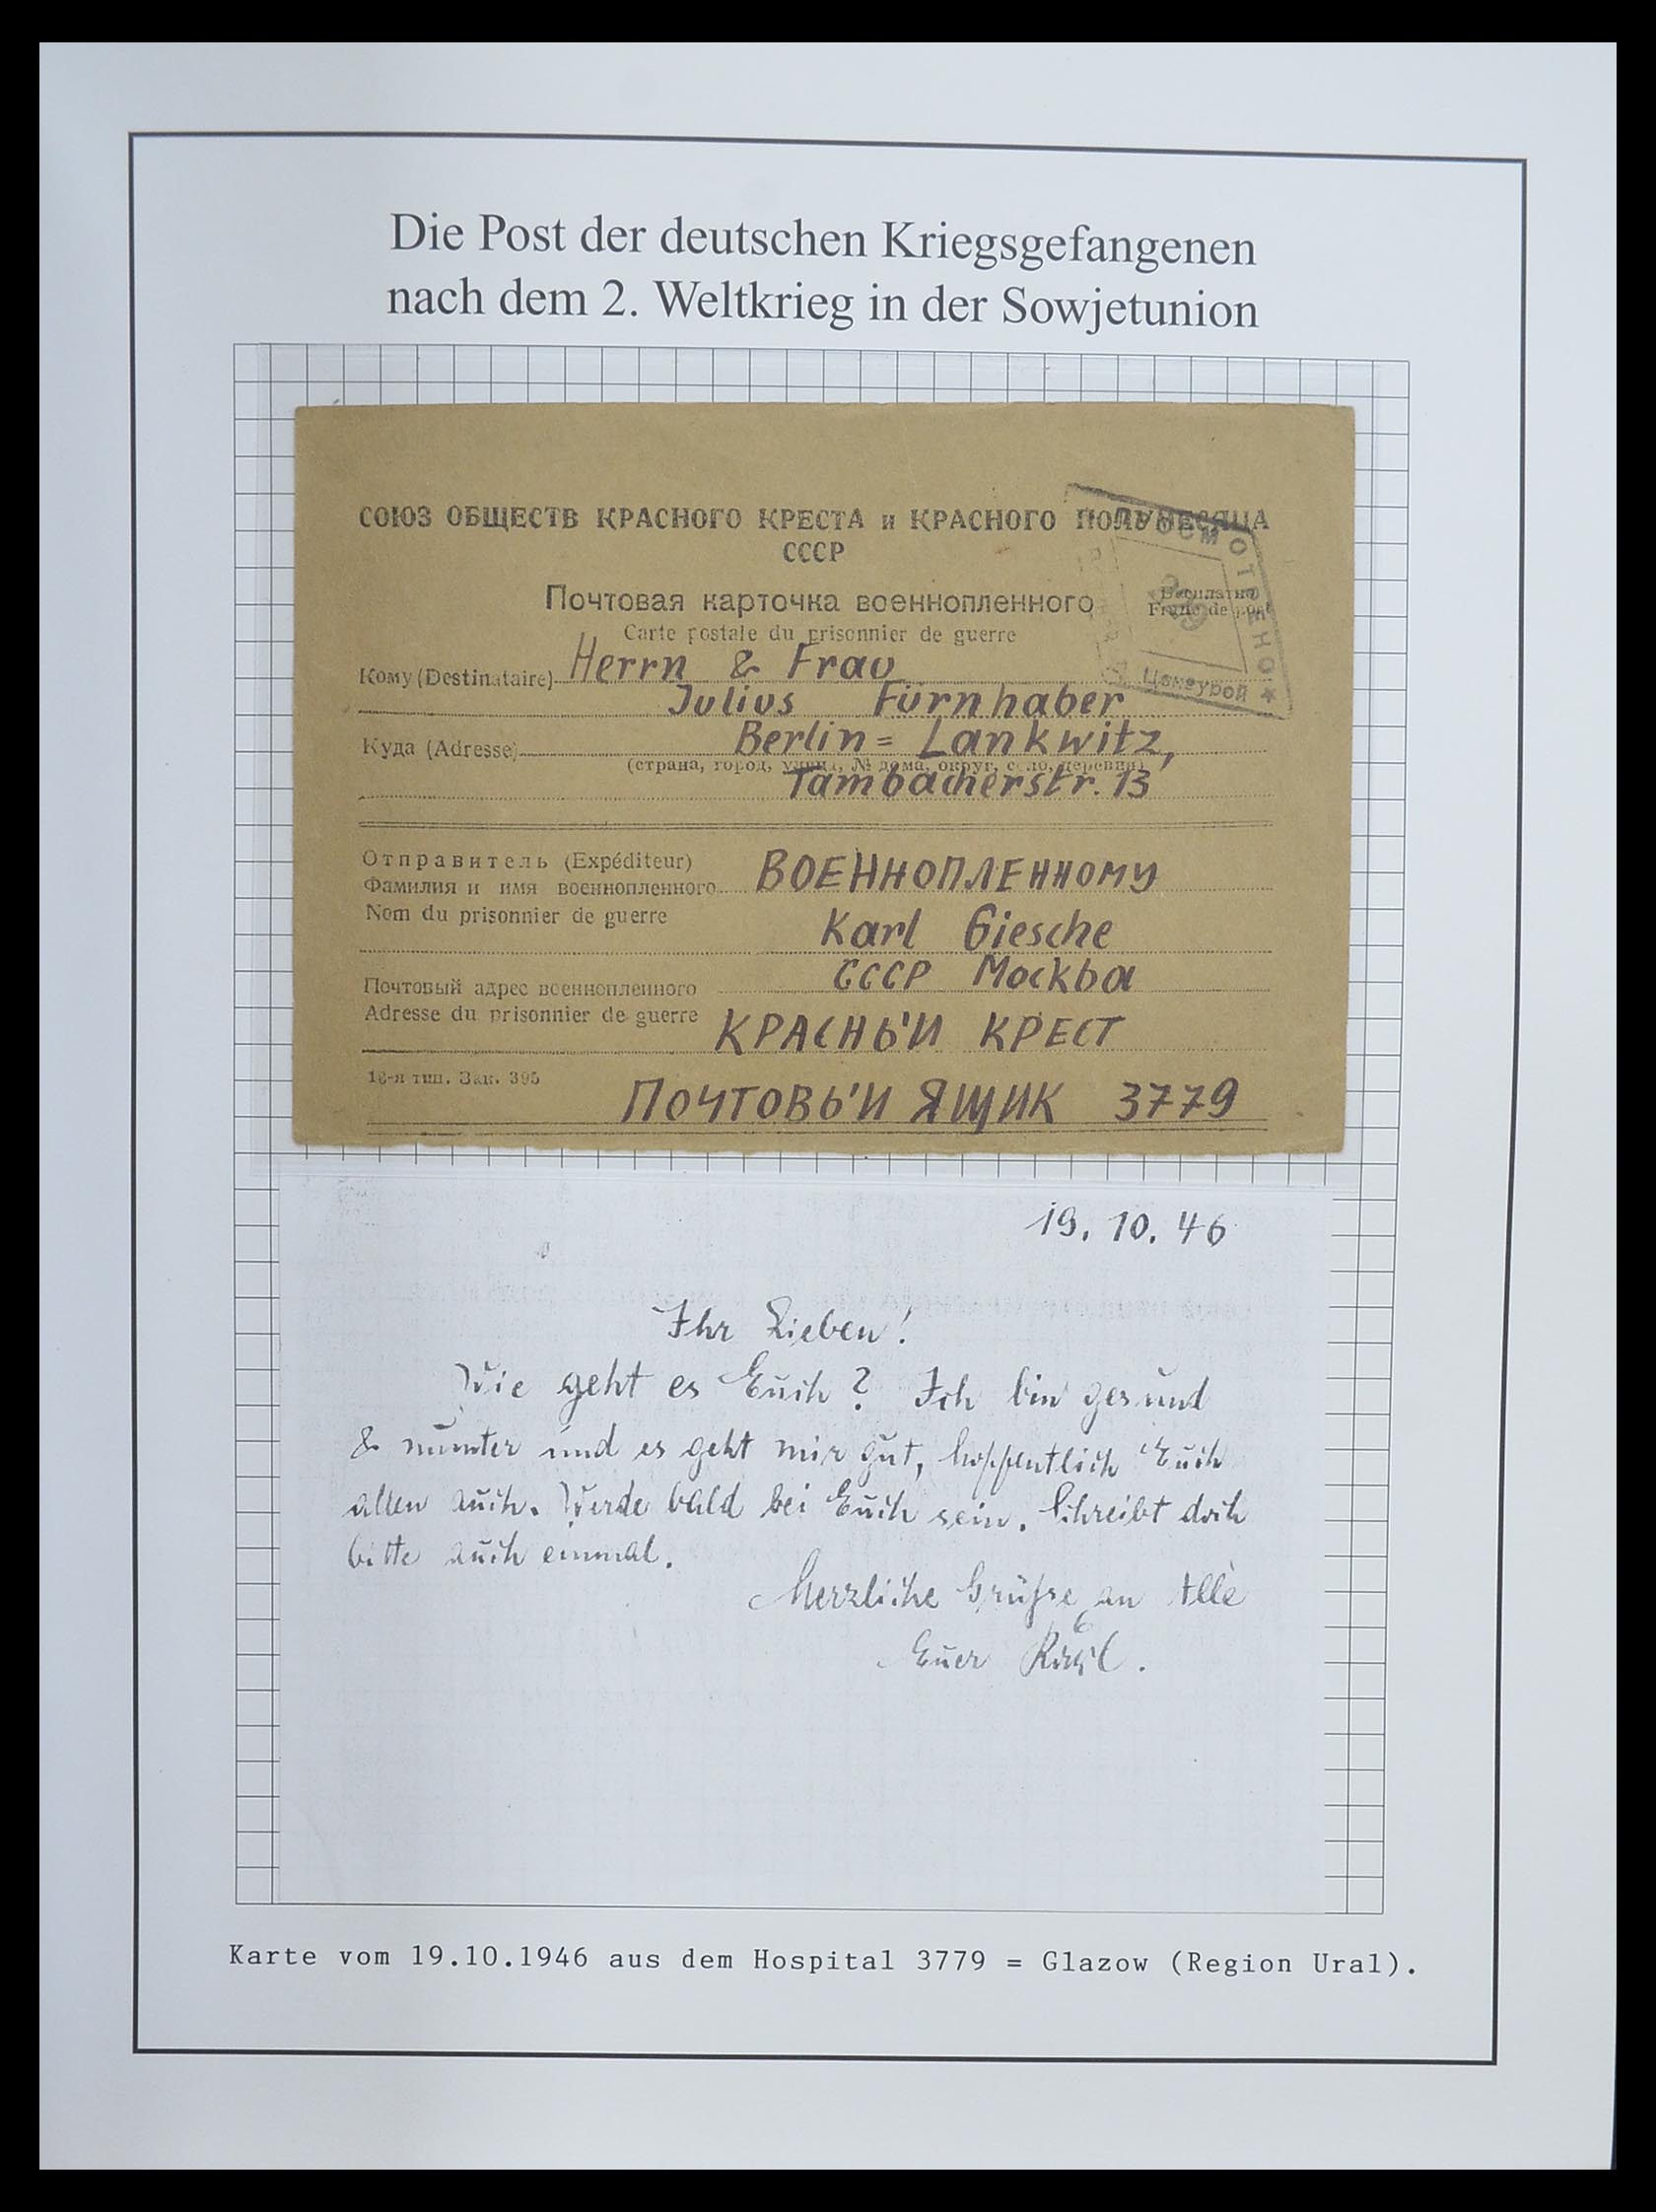 Die Post der deutschen Kriegsgefangenen
nach dem 2. Weltkrieg in der Sowjetunion
СОЮЗ ОБЩЕСТВ КРАСНОГО КРЕСТА и КРАСНОГО ПОЛУМЕСЯЦА
СССР
Почтовая карточка военнопленного
Бесплатно
Carte postale du prisonnier de guerre
Franc de port
ПРОСМОТРЕНО
Цензурой
Кому (Destinataire) Herrn & Frau
Julius Fürnhaber
Куда (Adresse) Berlin = Lankwitz,
(страна, город, улица, № дома, округ, село, деревня)
Tambacherstr. 13
Отправитель (Expéditeur)
Фамилия и имя военнопленного ВОЕННОПЛЕННОМУ
Nom du prisonnier de guerre
Karl Giesche
СССР Москва
Почтовый адрес военнопленного
Adresse du prisonnier de guerre КРАСНЫЙ КРЕСТ
18-я тип. Зак. 395
ПОЧТОВЫЙ ЯЩИК 3779
19. 10. 46
Ihr Lieben!
Wie geht es Euch? Ich bin gesund
& munter und es geht mir gut, hoffentlich Euch
allen auch. Werde bald bei Euch sein. Schreibt doch
bitte auch einmal.
Herzliche Grüße an Alle
Euer Karl.
Karte vom 19.10.1946 aus dem Hospital 3779 = Glazow (Region Ural).